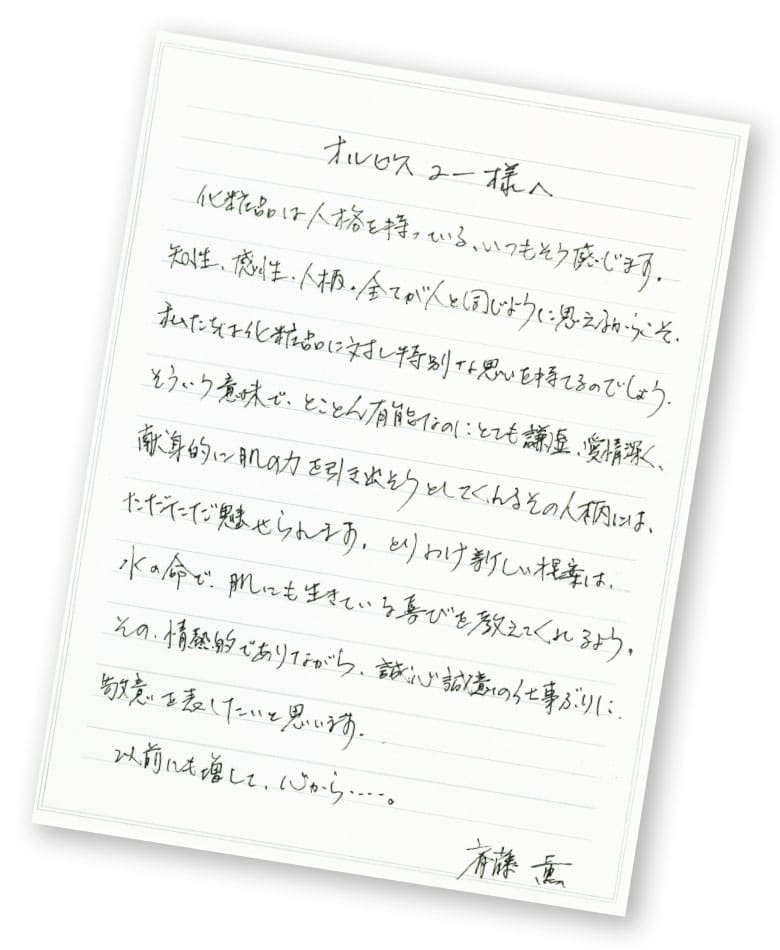 オルビス ユー 様へ
化粧品は人格を持っている、いつもそう感じます。
知性、感性、人柄。全てが人と同じように思えるからこそ、
私たちは化粧品に対し特別な思いを持てるのでしょう。
そういう意味で、とことん有能なのにとても謙虚、愛情深く、
献身的に肌の力を引き出そうとしてくれるその人柄には、
ただただ魅せられます。とりわけ新しい提案は、
水の命で、肌にも生きている喜びを教えてくれるよう。
その、情熱的でありながら、誠心誠意の仕事ぶりに、
敬意を表したいと思います。
以前にも増して、心から……。
斉藤 薫